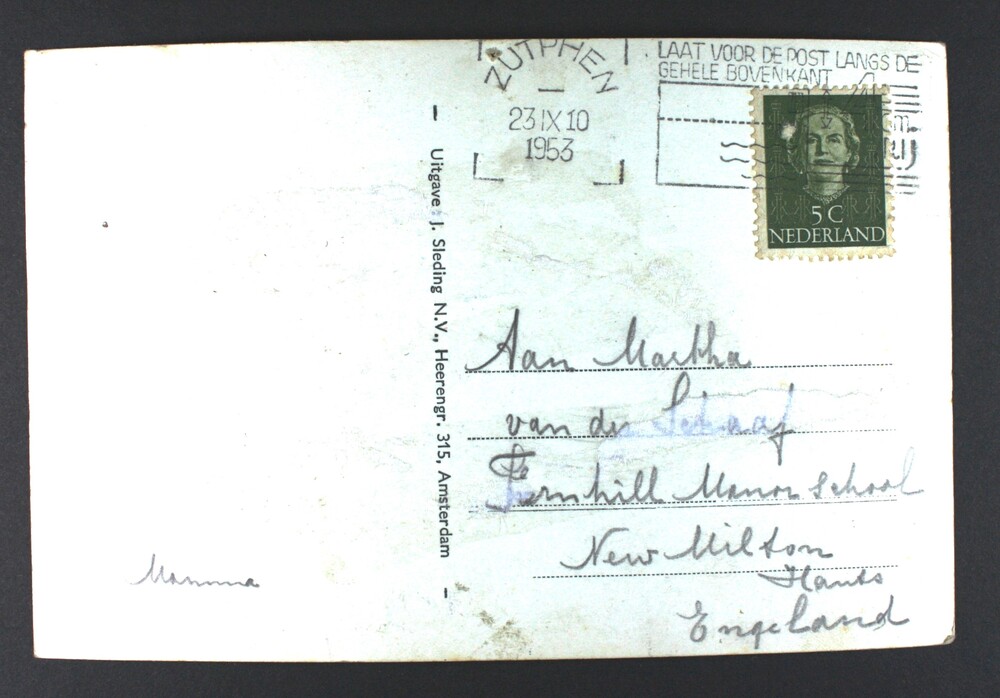 ZUTPHEN
23 IX 10
1953
LAAT VOOR DE POST LANGS DE
GEHELE BOVENKANT
5 C
NEDERLAND
- Uitgave J. Sleding N.V., Heerengr. 315, Amsterdam -
Aan Martha
van der Schaaf
Fernhill Manor School
New Milton
Hants
Engeland
Mamma